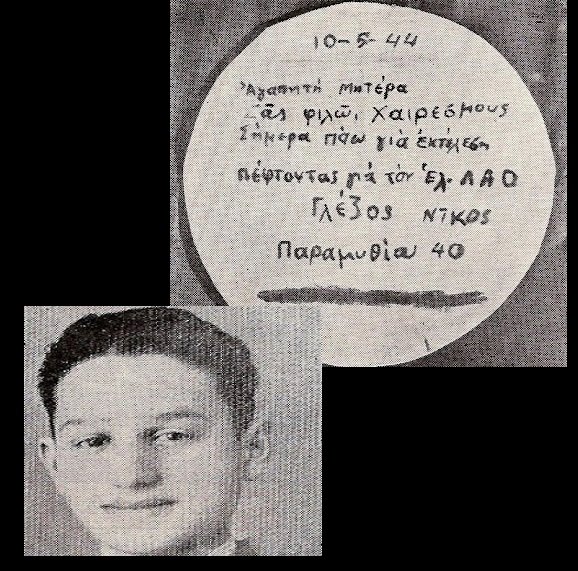 10-5-44
Ἀγαπητή μητέρα
Σᾶς φιλῶ, χαιρεσμους
Σήμερα πάω γιά ἐκτέλεση
πέφτοντας γιά τόν Ἑλ. ΛΑΟ
Γλέζος ΝΙΚΟΣ
Παραμυθία 40